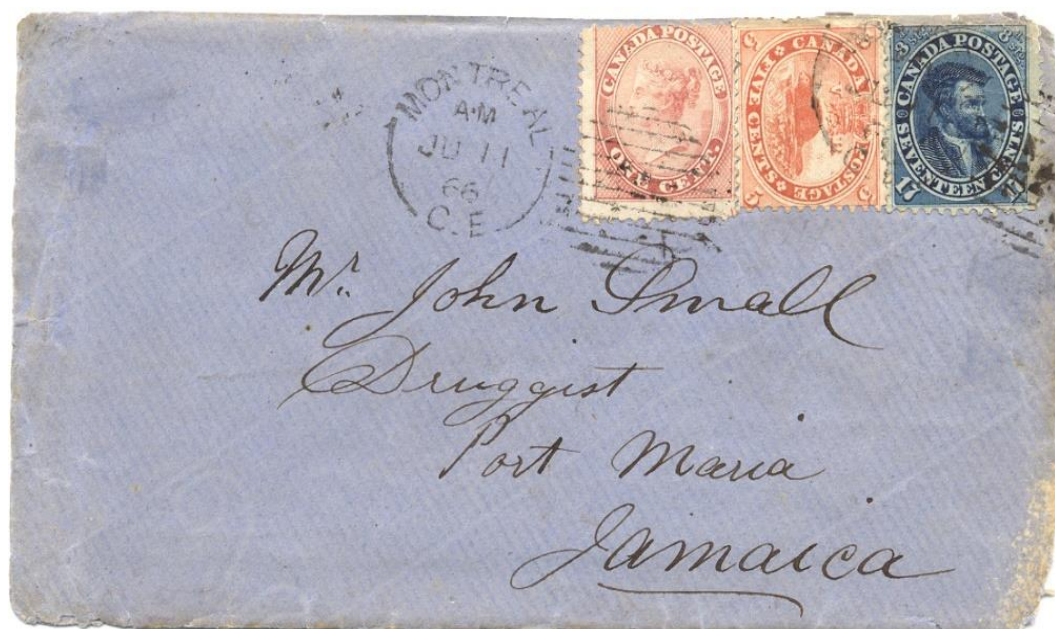 MONTREAL
AM
JU 11
66
C.E
CANADA POSTAGE
ONE CENT
CANADA POSTAGE
FIVE CENTS
5 5
8 3
CANADA POSTAGE
SEVENTEEN CENTS
17 17
Mr. John Small
Druggist
Port Maria
Jamaica